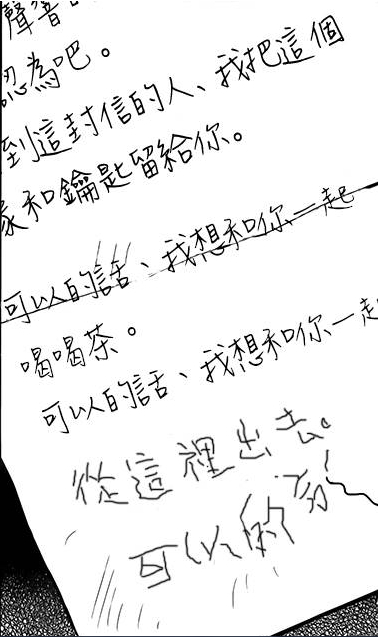 聲音
認為吧。
到這封信的人、我把這個
家和鑰匙留給你。
可以的話、我想和你一起
喝喝茶。
可以的話、我想和你一起
從這裡出去。
可以的